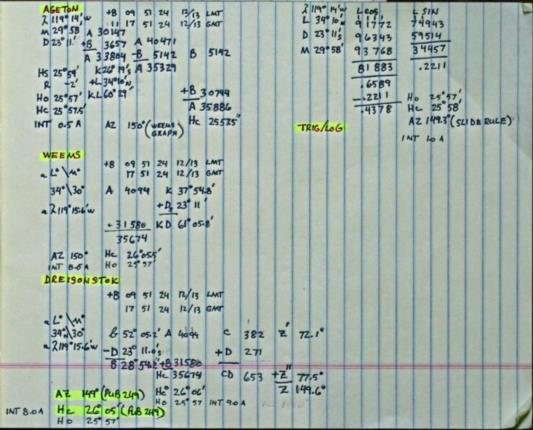 AGETON
λ 119° 14' W +B 09 51 24 12/13 LMT
M 29° 58' A 30147 17 51 24 11/13 GMT
D 23° 11' +B 3657 A 40471
A 33804 -B 5142 B 5142
HS 25° 59' K 26° A 35329
R -2' +L 34° 10' N
Ho 25° 57' K L 60° +B 30744
Hc 25° 57.5' A 35886
INT 0.5 A AZ 150° (WEEMS GRAPH) Hc
λ 119° 14' W L COS L SIN
L 34° 10' N 91772 74943
D 23° 11' S 96343 59514
M 29° 58' 93768 34457
81883 .2211
.6589
-.2211 Ho 25° 57'
.4378 Hc 25° 58'
AZ 149.3° (SLIDE RULE)
TRIG/LOG
INT 1.0 A
WEEMS
+B 09 51 24 12/13 LMT
a L° \ M° 17 51 24 12/13 GMT
34° \ 30° A 4094 K 37° 54.8'
a λ 119° 15.6' W +D 23° 11'
+31580 K D 61° 05.8'
35674
AZ 150° Hc 26° 05.5'
INT 8.5 A Ho 25° 57'
DREISONSTOK
+B 09 51 24 12/13 LMT
17 51 24 12/13 GMT
a L° \ M°
34° \ 30° 52° 05.2' A 4094 C 382 Z' 72.1°
a λ 119° 15.6' W -D 23° 11.0' +D 271
B 28° 54.2' +B 31580
Hc 35674 CD 653 +Z" 77.5°
AZ 149° (PUB 249) Hc 26° 06' Z 149.6°
INT 8.0 A Hc 26° 05' (PUB 249) Ho 25° 57' INT 9.0 A
Ho 25° 57'